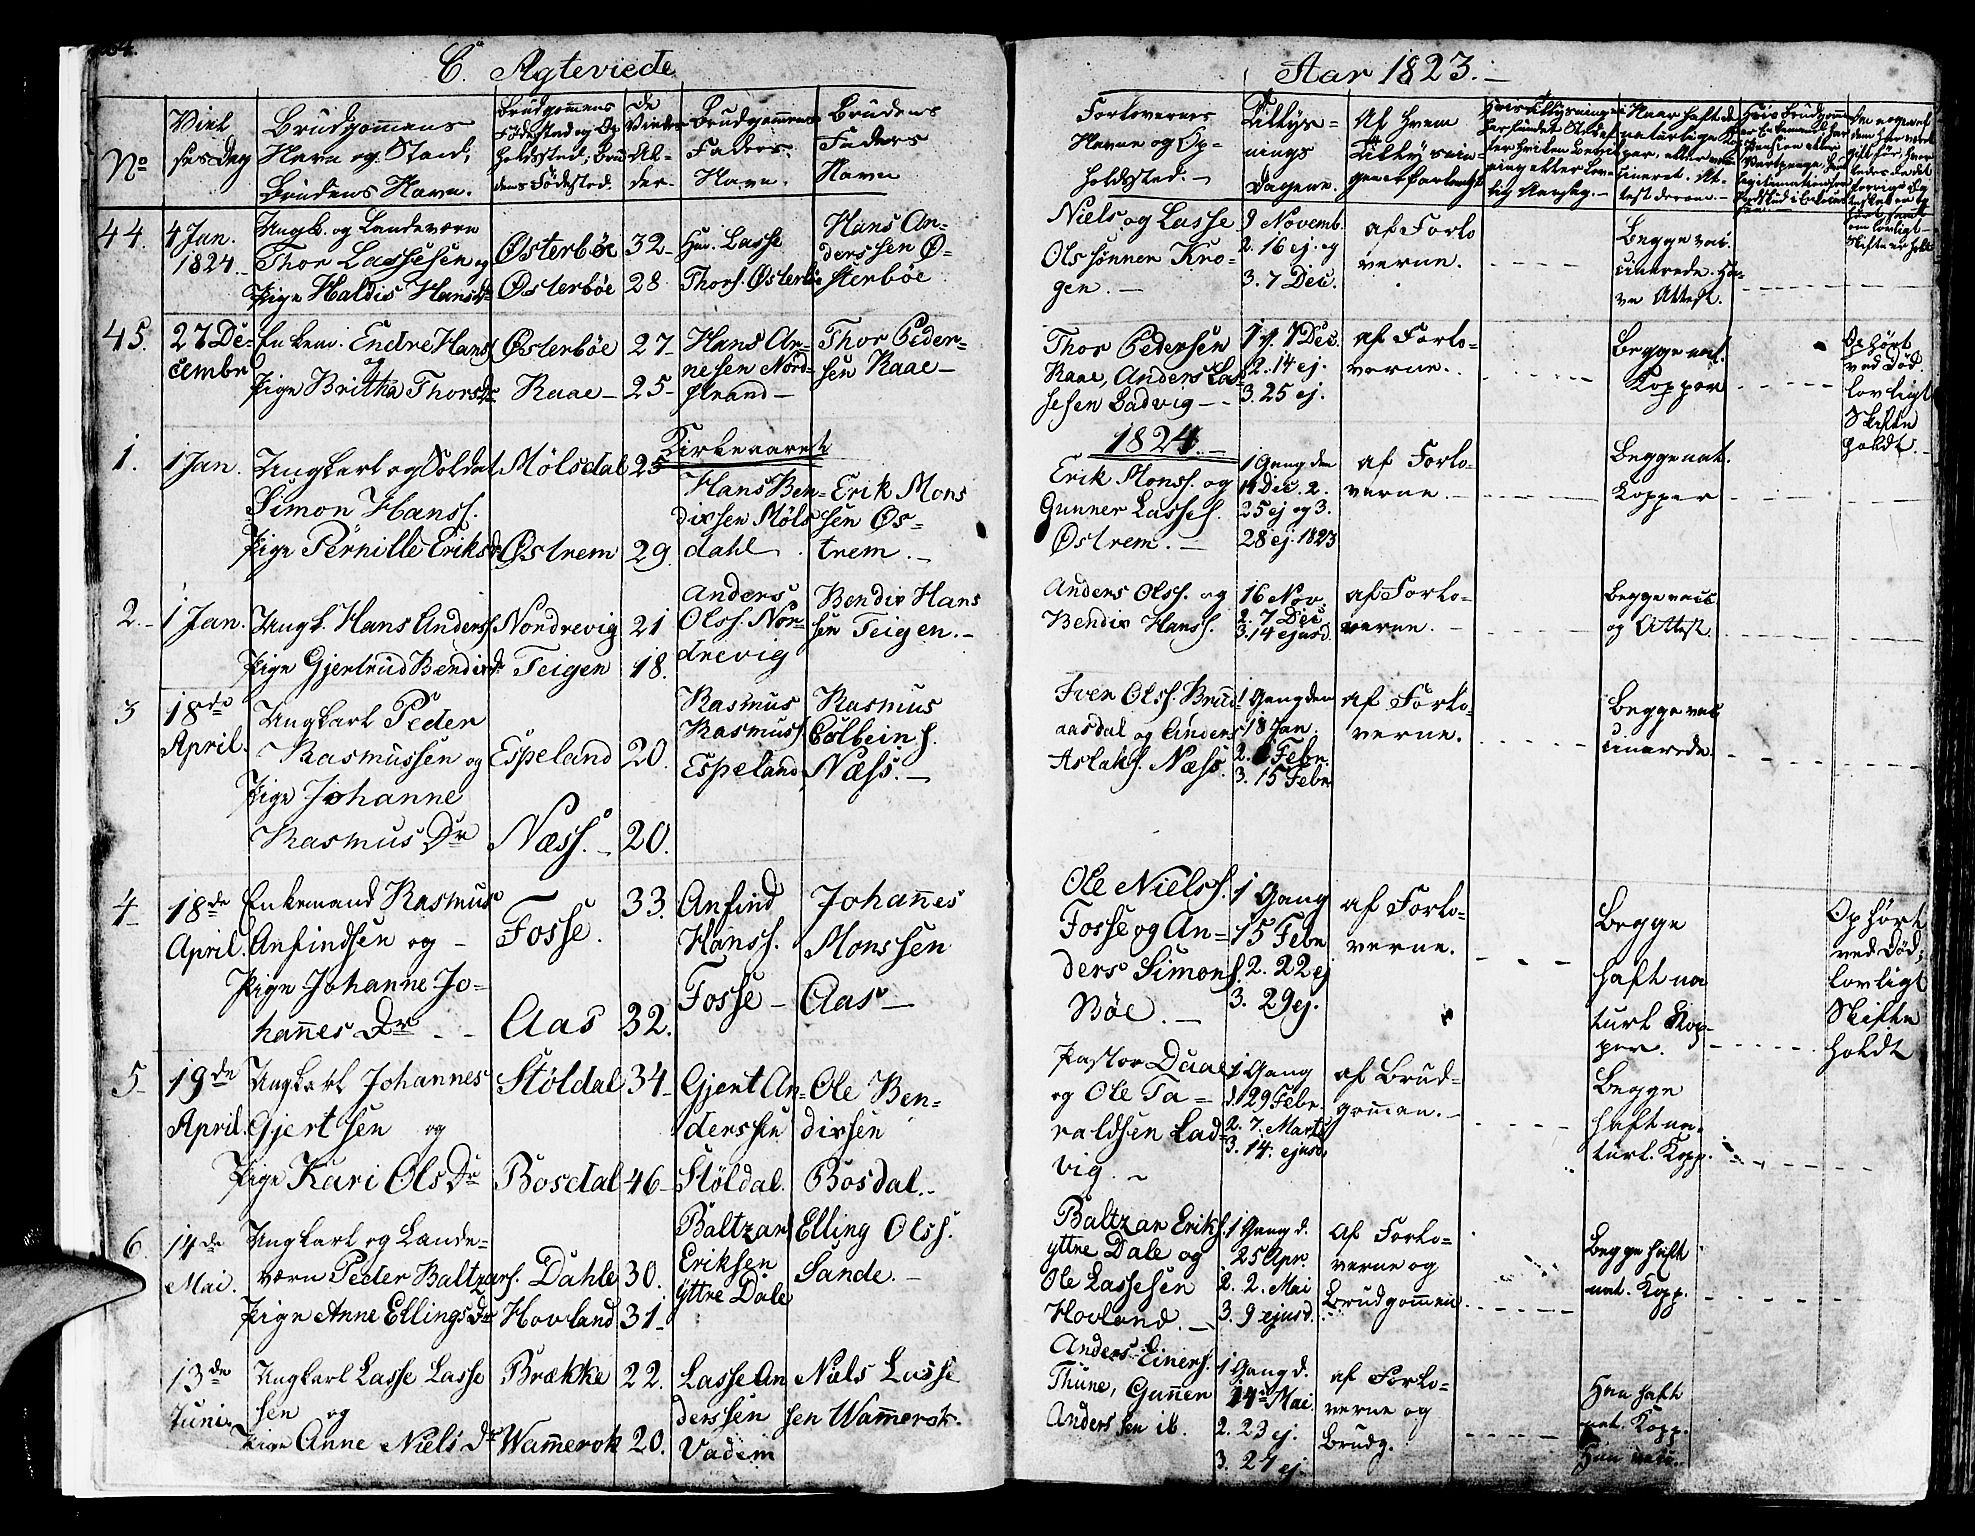 C. Ægteviede
Aar 1823.
No
Viel
ses dag
Brudgommens
Navn og Stand,
Brudens Navn.
Brudgommens
Fødested og Op
holdssted, Bru
dens Fødested.
De
Viedes
Al-
der
Brudgommens
Faders
Navn.
Brudens
Faders
Navn
Forlovernes
Navne og Op-
holdssted.
Tillys-
nings
Dagene.
Af hvem
Tillysnin-
gen er forlangt
44.
4 Jan.
1824.
Ungk. og Landeværn
Thor Lassesen og
Pige Haldis Hans Dr
Østerbøe 32
Østerbøe 28
Lasse
Thors. Østerbøe
Hans An-
derssen Ø-
sterbøe
Niels og Lasse
Olssønner Kro-
gen.
9 Novemb.
2. 16 ej. og
3. 7 Dec.
af Forlo
verne.
Begge vac-
cinerede. Ha-
ve Attest.
45.
27 De-
cembr
Enkem. Endre Hanss.
og
Pige Britha Thors Dr
Østerbøe 27
Raae 25
Hans An-
nesen Nord-
strand
Thor Peder-
sen Raae
Thor Pedersen
Raae, Anders Las-
sesen Ladvig
1 g. 7 Dec.
2. 14 ej.
3. 25 ej.
af Forlo-
verne.
Begge nat.
Kopper
Ophørt
ved Død.
lovligt
Skifte
holdt.
Kirkeaaret
1824.
1.
1 Jan.
Ungkarl og Soldat
Simon Hanss.
Pige Pernille Eriks Dr
Mølsdal 25
Østrem 29
Hans Ben-
dixsen Møls
dahl
Erik Mons
sen Øs-
trem.
Erik Monss. og
Gunner Lasses.
Østrem.
1 Gang den
14 Dec. 2.
25 ej og 3.
28 ej. 1823
af Forlo-
verne.
Begge nat.
Kopper
2.
1 Jan.
Ungk. Hans Anderss.
Pige Gjertrud Bendix Dr
Nordrevig 21
Teigen 18.
Anders
Olss. Nor-
drevig
Bendix Hans
sen Teigen.
Anders Olss. og
Bendix Hanss.
16 Nov.
2. 7 Dec.
3. 14 ejusd.
af Forlo-
verne.
Begge vacc.
og Attest
3
18de
April.
Ungkarl Peder
Rasmussen og
Pige Johanne
Rasmus Dr
Espeland 20.
Næss. 20.
Rasmus
Rasmuss.
Espeland
Rasmus
Colbeins.
Næss.
Iver Olss. Brud-
aasdal og Anders
Aslaks. Næss.
1 Gang den
18 Jan.
2. Febr.
3. 15 Febr
af Forlo-
verne.
Begge vac
cinerede.
4
18de
April.
Enkemand Rasmus
Anfindsen og
Pige Johanne Jo-
hannes Dr
Fosse. 33.
Aas 32.
Anfind
Hanss.
Fosse
Johannes
Monssen
Aas
Ole Nielss.
Fosse og An-
ders Simons.
Bøe.
1 Gang
15 Febr
2. 22 ej
3. 29 ej.
af Forlo-
verne.
Begge
haft na
turl. Kop-
per.
Ophørt
ved Død;
lovligt
Skifte
holdt
5
19de
April.
Ungkarl Johannes
Gjertsen og
Pige Kari Ols Dr
Støldal 34
Bosdal 46
Gjert An-
derssen
Støldal.
Ole Ben-
dixsen
Bosdal.
Pastor Daae
og Ole Ta-
raldsen Lad-
vig.
1 Gang
d. 29 Febr.
2. 7. Marts
3. 14. ejusd.
af Brud-
gommen.
Begge
haft na-
turl. Kopp.
6
14de
Mai.
Ungkarl og Lande-
værn Peder Baltzers.
Pige Anne Ellings Dr
Dahle 30.
Hovland 31
Baltzar
Eriksen
yttre Dale
Elling Olss.
Sande.
Baltzar Eriks.
yttre Dale og
Ole Lassesen
Hovland.
1 Gang d.
25 Apr.
2. 2. Mai
3. 9 ejusd.
af Forlo-
verne og
Brudgommen
Begge haft
nat. Kopp.
13de
Juni
Ungkarl Lasse Lasse
sen og
Pige Anne Niels Dr
Brække 22.
Wamerok 20.
Lasse An
derssen
Vadeim
Niels Lasse
sen Wamerok.
Anders Einers.
Thune, Gunner
Anderssen ib.
1 Gang d.
Mai.
2. 23 ej.
3. 27 ej.
af Forlo-
verne og
Brudg.
Han haft
nat. Kopp.
Hun vacc.